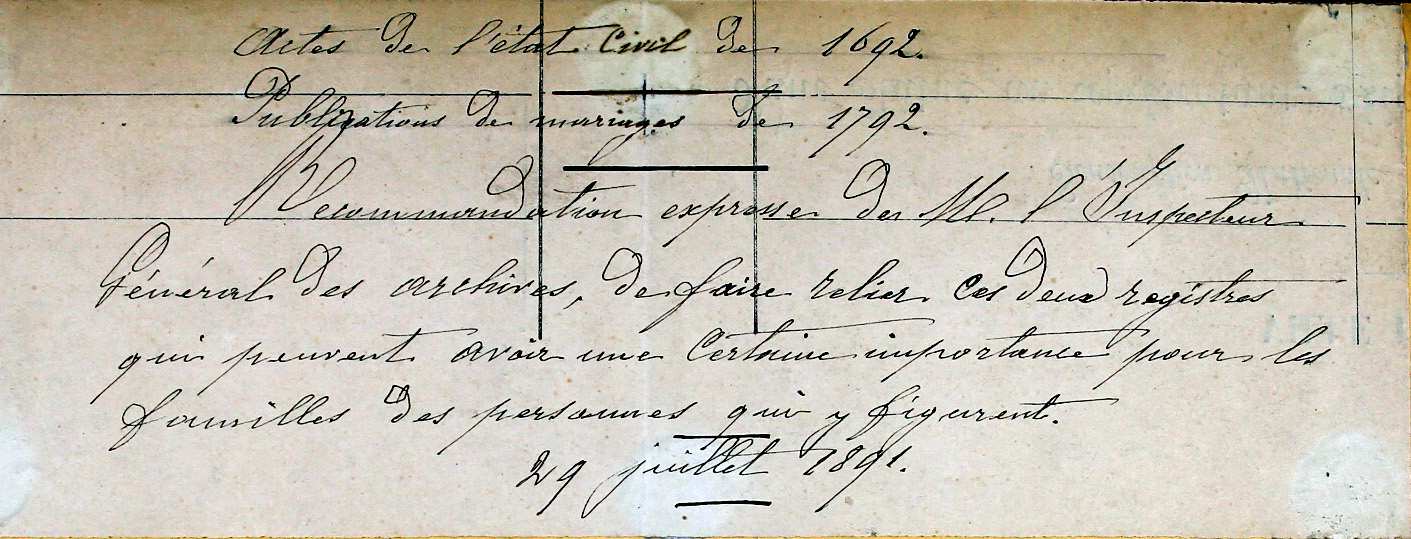 Actes de l'état Civil de 1692.
Publications de mariages de 1792.
Recommandation expresse de M. l'Inspecteur
Général des archives, de faire relier ces deux registres
qui peuvent avoir une certaine importance pour les
familles des personnes qui y figurent.
29 juillet 1891.